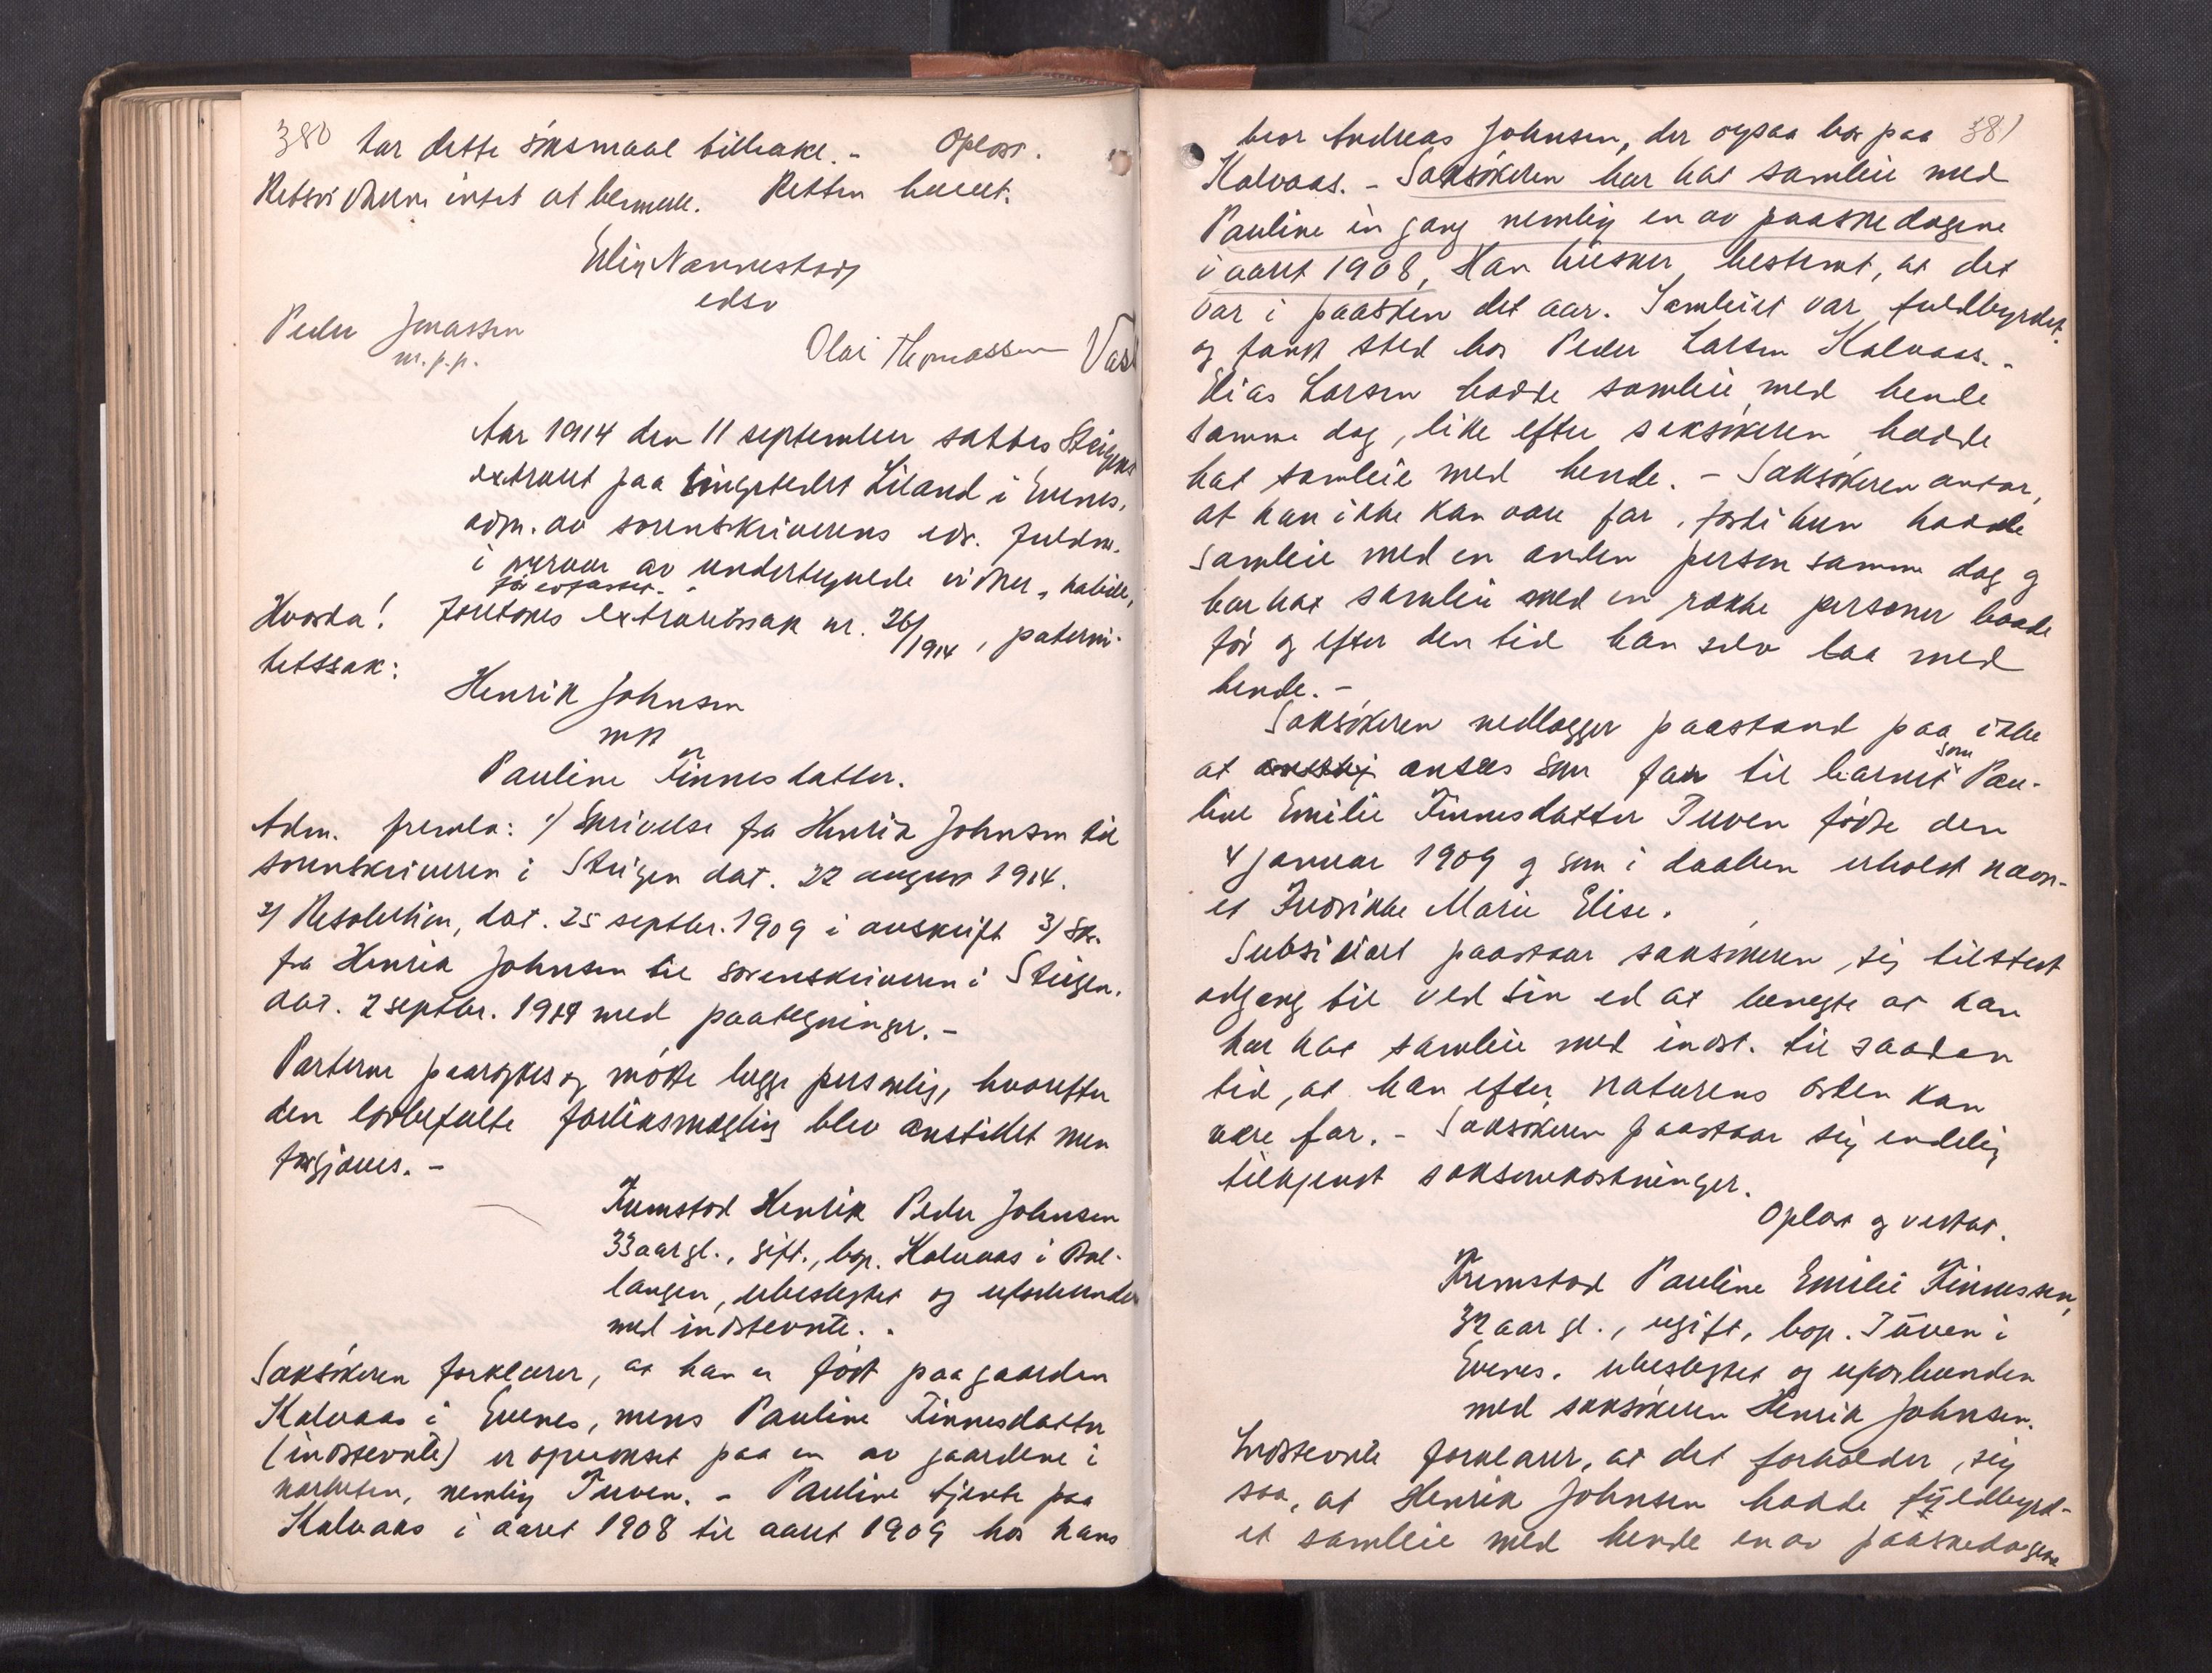 380 tar dette søksmaal tilbake. - Oplæst.
Retsvidnerne intet at bemerke. Retten hævet.
Erling Nannestad
edsv
Peder Jonassen
m.p.p.
Olai Thomassen
Aar 1914 den 11 september sattes Steigens
extraret paa tingstedet Liland i Evenes,
adm. av sorenskriverens eds. fuldm.
i nærvær av undertegnede vidner, habile,
Hvorda! Foretokes extraretssak nr. 26/1914, paterni-
tetssak:
Henrik Johnsen
mot
Pauline Finnesdatter.
Adm. fremla: 1/ Skrivelse fra Henrik Johnsen til
sorenskriveren i Steigen dat. 22 august 1914.
2/ Resolution, dat. 25 septbr. 1909 i avskrift 3/ Skr.
fra Henrik Johnsen til sorenskriveren i Steigen.
dat. 2 septbr. 1914 med paategninger. -
Parterne paaroptes og møtte begge personlig, hvorefter
den lovbefalte forliksmægling blev anstillet men
forgjæves. -
Fremstod Henrik Peder Johnsen
33 aar gl., gift, bop. Kalvaas i Bal-
langen, ubeslegtet og uforbunden
med indstevnte. -
Saksøkeren forklarer, at han er født paa gaarden
Kalvaas i Evenes, mens Pauline Finnesdatter
(indstevnte) er opvokset paa en av gaardene i
nærheten, nemlig Tuven. - Pauline tjente paa
Kalvaas i aaret 1908 til aaret 1909 hos hans
bror Andreas Johnsen, der ogsaa bor paa 381
Kalvaas. - Saksøkeren har hat samleie med
Pauline én gang nemlig en av paaskedagene
i aaret 1908, Han husker bestemt, at det
var i paasken det aar. Samleiet var fuldbyrdet
og fandt sted hos Peder Larsen Kalvaas. -
Elias Larsen hadde samleie med hende
samme dag, like efter saksøkeren hadde
hat samleie med hende. - Saksøkeren antar,
at han ikke kan være far, fordi hun hadde
samleie med en anden person samme dag og
har hat samleie med en række personer baade
før og efter den tid han selv laa med
hende. -
Saksøkeren nedlægger paastand paa ikke
at ansees som far til barnet som Pau-
line Emilie Finnesdatter Tuven fødte den
4 januar 1909 og som i daaben erholdt navn-
et Fredrikke Marie Elise.
Subsidiært paastaar saksøkeren sig tilstedt
adgang til ved sin ed at benegte at han
har hat samleie med indst. til saadan
tid, at han efter naturens orden kan
være far. - Saksøkeren paastaar sig endelig
tilkjendt saksomkostninger.
Oplæst og vedtat.
Fremstod Pauline Emilie Finnessen,
32 aar gl., ugift, bop. Tuven i
Evenes. ubeslegtet og uforbunden
med saksøkeren Henrik Johnsen.
Indstevnte forklarer, at det forholder sig
saa, at Henrik Johnsen hadde fuldbyrd-
et samleie med hende en av paaskedagene